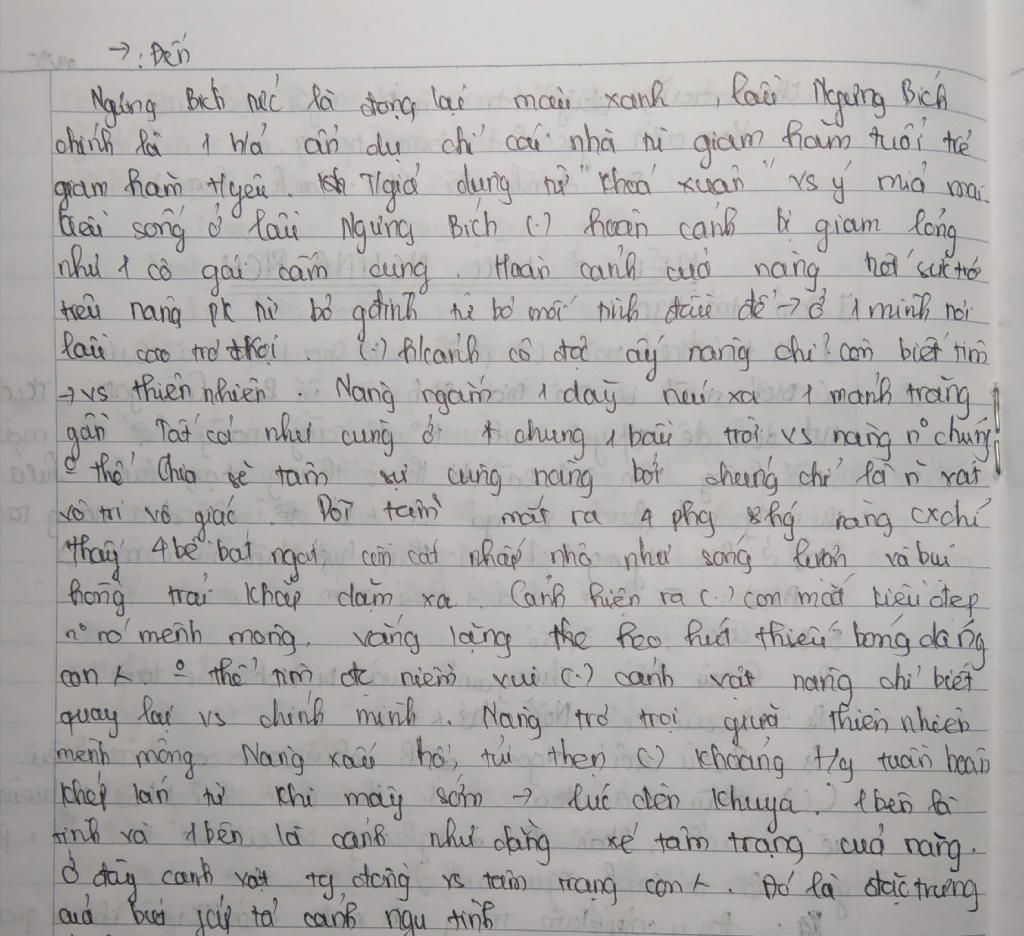 → : Đến
Ngưng Bích nước là đọng lại màu xanh, lầu Ngưng Bích
chính là 1 h/ả ẩn dụ chỉ cái nhà tù giam hãm tuổi trẻ
giam hãm t/yêu. T/giả dùng từ "khoá xuân" vs ý mỉa mai.
Kiều sống ở lầu Ngưng Bích (.) hoàn cảnh bị giam lỏng
như 1 cô gái cấm cung. Hoàn cảnh của nàng hết sức trớ
trêu nàng pk từ bỏ gđình từ bỏ mối tình đầu để → ở 1 mình nơi
lầu cao trơ trọi. (.) h/cảnh cô độc ấy nàng chỉ còn biết tìm
→ vs thiên nhiên. Nàng ngắm 1 dãy núi xa 1 mảnh trăng
gần Tất cả như cùng ở chung 1 bầu trời vs nàng n° chúng
thể chia sẻ tâm sự cùng nàng bởi chúng chỉ là vật
vô tri vô giác. Dời tầm mắt ra 4 phg nàng cx chỉ
thấy 4 bề bát ngát, cồn cát nhấp nhô như sóng lượn và bụi
hồng trải khắp dặm xa. Cảnh hiện ra (.) con mắt Kiều đẹp
n° nó mênh mông, vắng lặng heo hút thiếu bóng dáng
con thể tìm đc niềm vui (.) cảnh vật nàng chỉ biết
quay lại vs chính mình. Nàng trơ trọi giữa thiên nhiên
mênh mông Nàng xấu hổ, tủi thẹn (.) khoảng t/g tuần hoàn
khép kín từ khi mây sớm → lúc đèn khuya. 1 bên là
tình và 1 bên là cảnh như dằng xé tâm trạng của nàng.
Ở đây cảnh vật tg đồng vs tâm trạng con. Đó là đặc trưng
của bút pháp tả cảnh ngụ tình